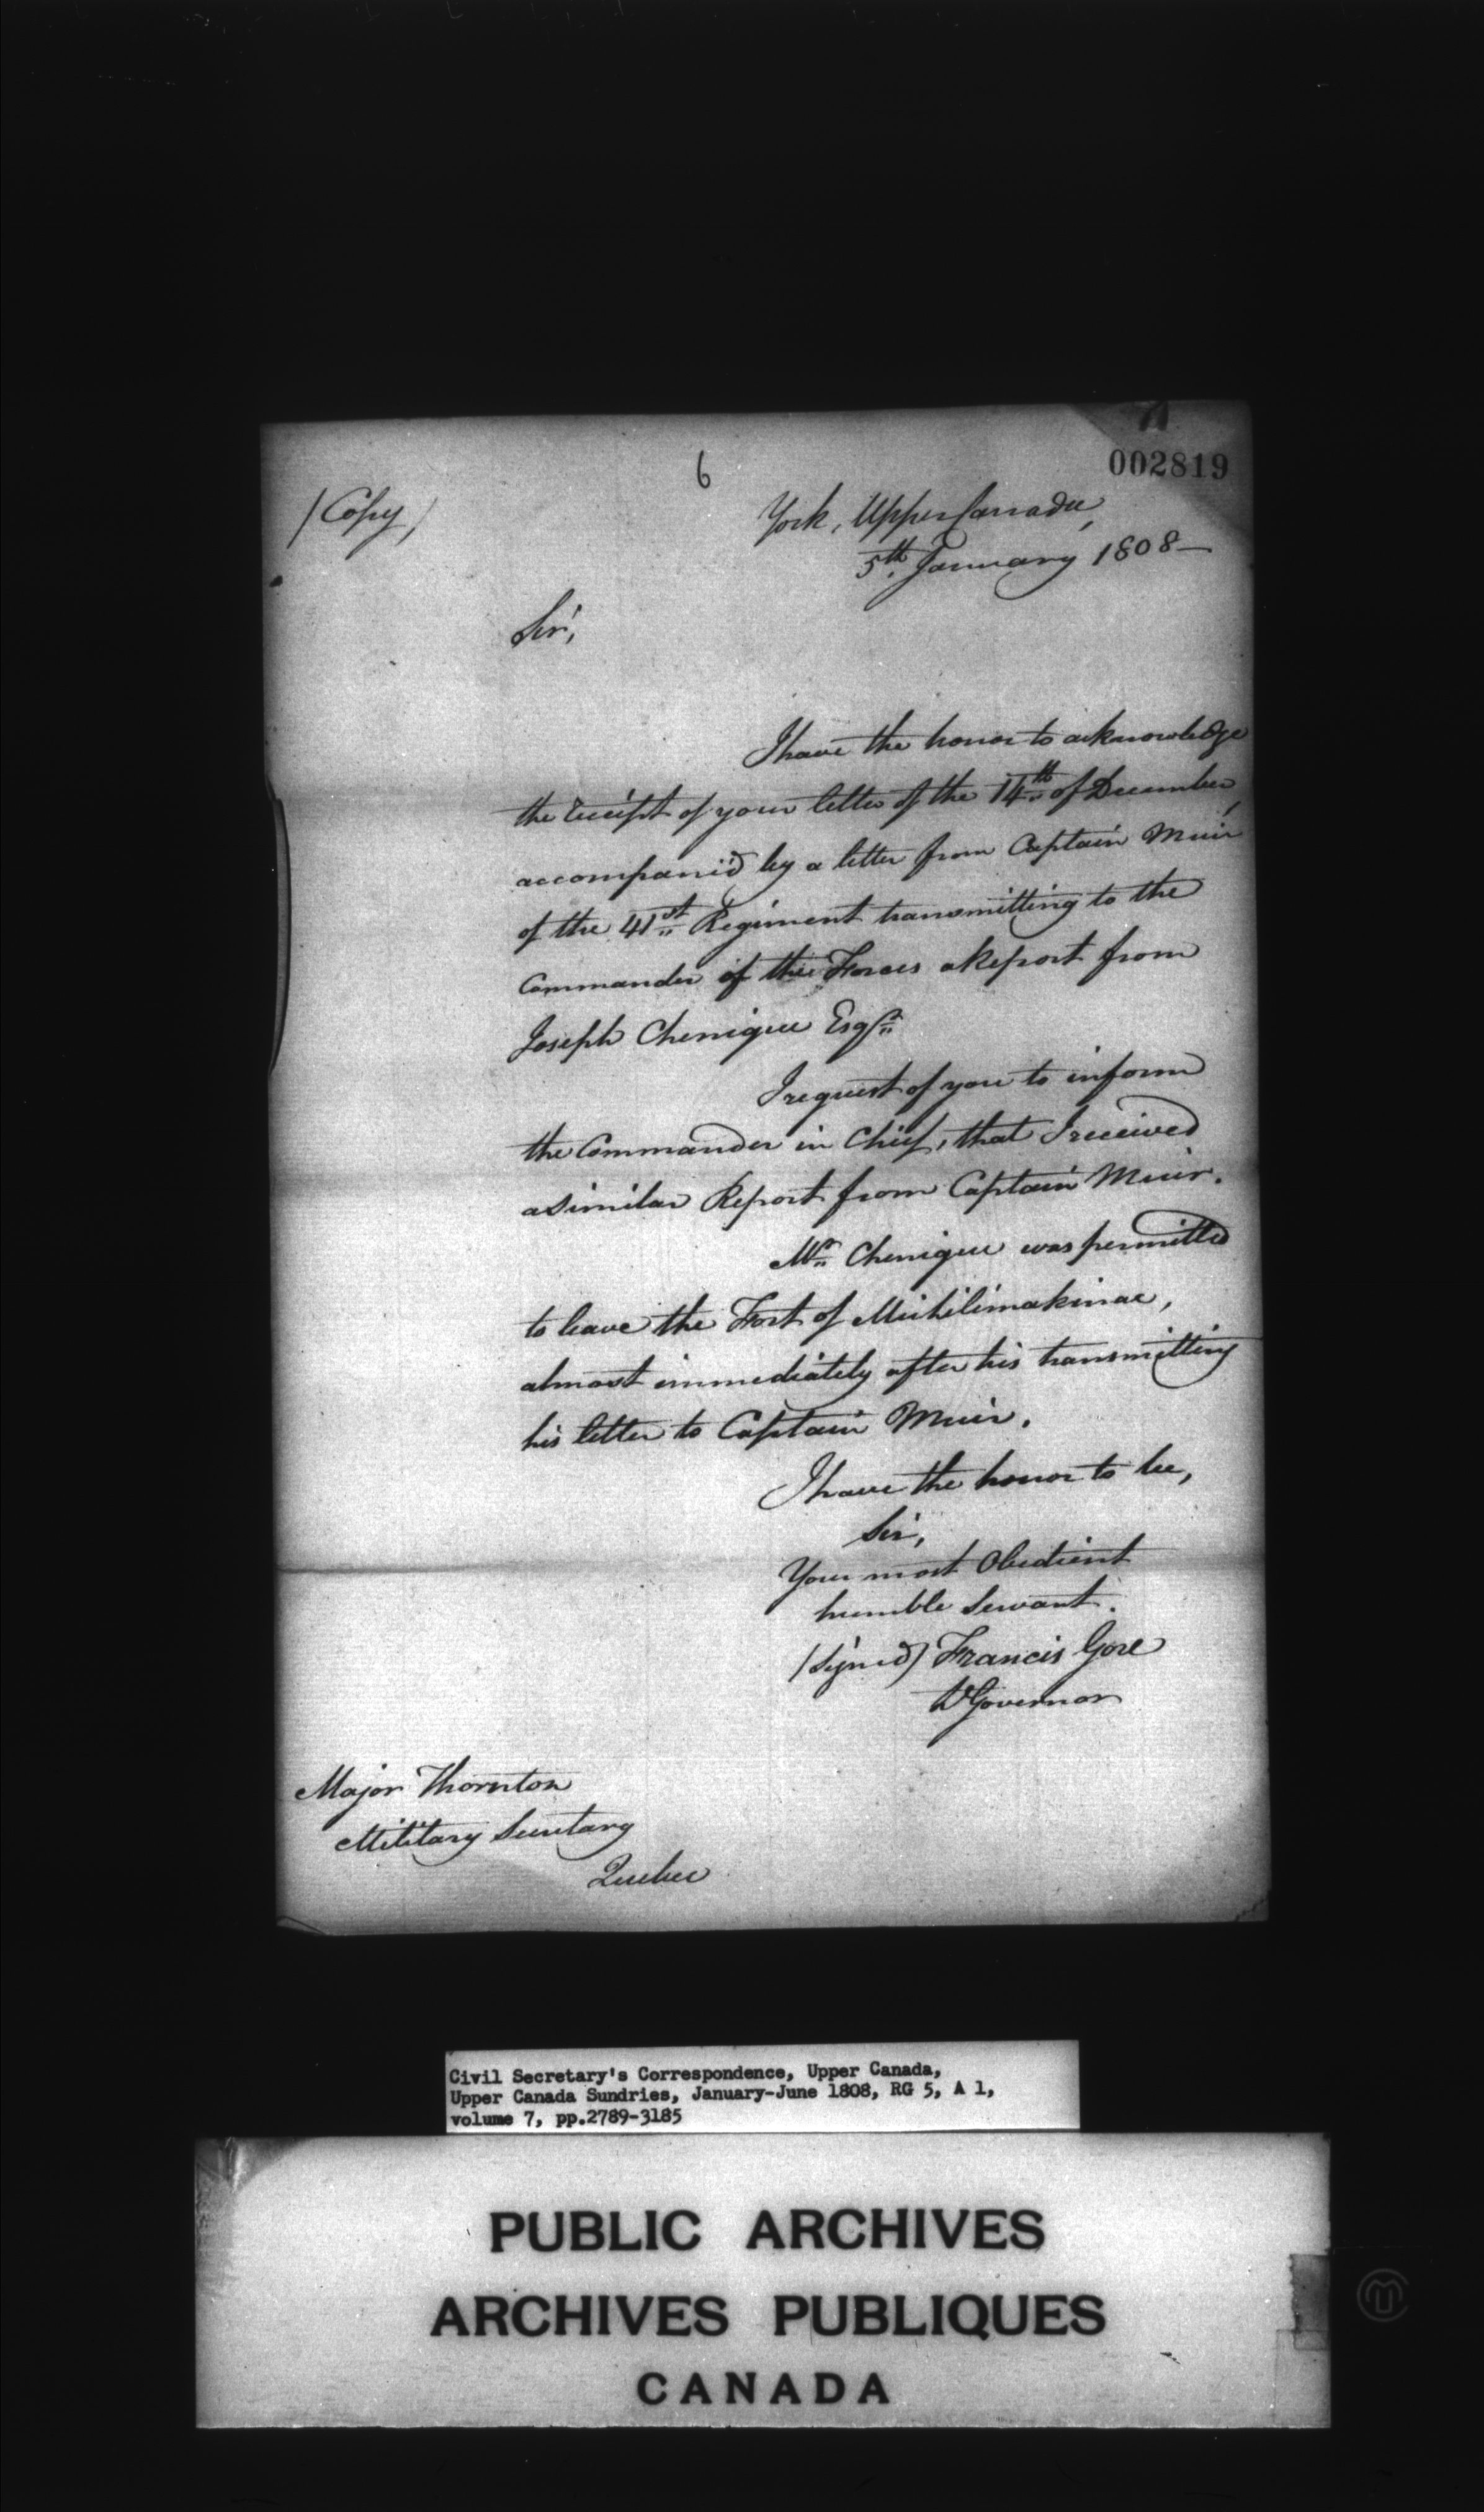 6
002819
(Copy)
York, Upper Canada,
5th January 1808 —
Sir,
I have the honor to acknowledge
the receipt of your letter of the 14th of December
accompanied by a letter from Captain Muir
of the 41st Regiment transmitting to the
Commander of the Forces a Report from
Joseph Chenique Esqr
I request of you to inform
the Commander in Chief, that I received
a similar Report from Captain Muir.
Mr Cheniqee was permitted
to leave the Fort of Michilimakinac,
almost immediately after his transmitting
his letter to Captain Muir.
I have the honor to be,
Sir,
Your most Obedient
humble Servant.
(Signed) Francis Gore
Lt Governor
Major Thornton
Military Secretary
Quebec
Civil Secretary's Correspondence, Upper Canada,
Upper Canada Sundries, January-June 1808, RG 5, A 1,
volume 7, pp.2789-3185
PUBLIC ARCHIVES
ARCHIVES PUBLIQUES
CANADA